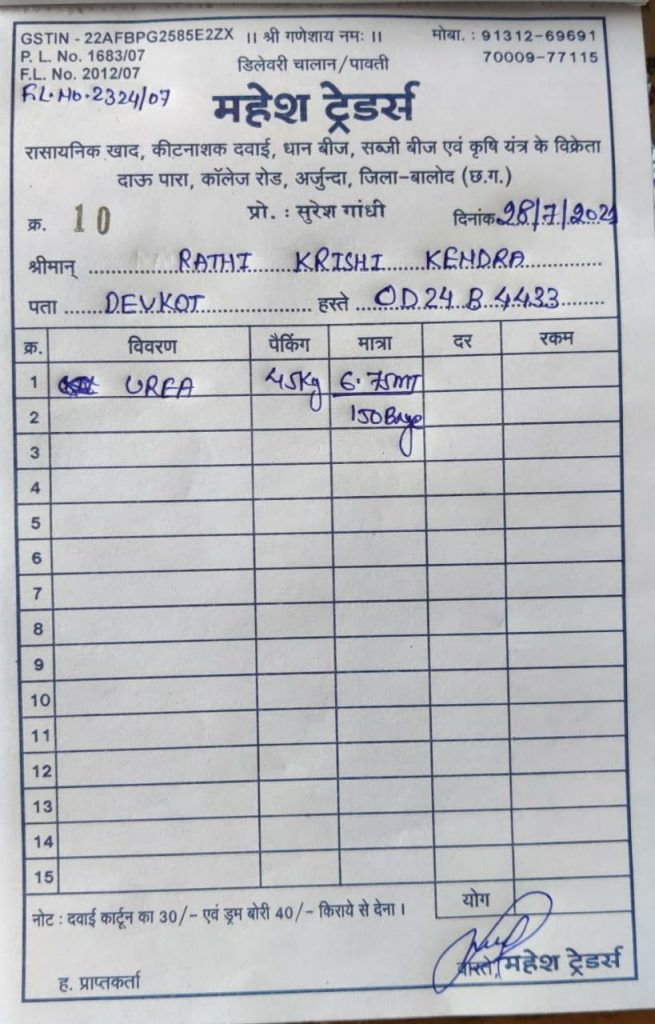 GSTIN - 22AFBPG2585E2ZX ।। श्री गणेशाय नमः ।। मोबा. : 91312-69691
P. L. No. 1683/07 70009-77115
F.L. No. 2012/07 डिलेवरी चालान/पावती
F.L. No. 2324/07
महेश ट्रेडर्स
रासायनिक खाद, कीटनाशक दवाई, धान बीज, सब्जी बीज एवं कृषि यंत्र के विक्रेता
दाऊ पारा, कॉलेज रोड, अर्जुन्दा, जिला-बालोद (छ.ग.)
प्रो. : सुरेश गांधी
क्र. 10 दिनांक 28/7/2021
श्रीमान् RATHI KRISHI KENDRA
पता DEVKOT हस्ते OD24 B 4433
क्र. विवरण पैकिंग मात्रा दर रकम
1 UREA 45Kg 6.75MT
2 150Bags
3
4
5
6
7
8
9
10
11
12
13
14
15
योग
नोट : दवाई कार्टून का 30/- एवं ड्रम बोरी 40/- किराये से देना ।
वास्ते, महेश ट्रेडर्स
ह. प्राप्तकर्ता